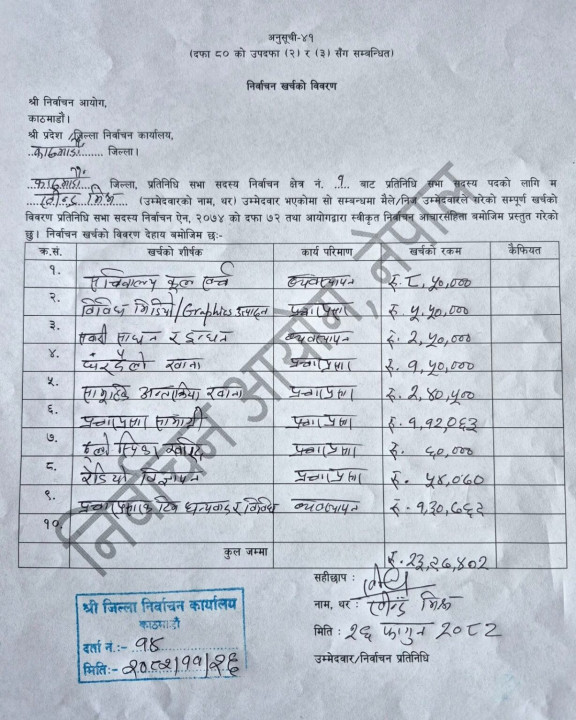 अनुसूची-४१
(दफा ८० को उपदफा (२) र (३) सँग सम्बन्धित)
निर्वाचन खर्चको विवरण
श्री निर्वाचन आयोग,
काठमाडौं।
श्री प्रदेश/जिल्ला निर्वाचन कार्यालय,
काठमाडौं जिल्ला।
काठमाडौं जिल्ला, प्रतिनिधि सभा सदस्य निर्वाचन क्षेत्र नं. १ बाट प्रतिनिधि सभा सदस्य पदको लागि म
रवीन्द्र मिश्र (उम्मेदवारको नाम, थर) उम्मेदवार भएकोमा सो सम्बन्धमा मैले/निज उम्मेदवारले गरेको सम्पूर्ण खर्चको
विवरण प्रतिनिधि सभा सदस्य निर्वाचन ऐन, २०७४ को दफा ७२ तथा आयोगद्वारा स्वीकृत निर्वाचन आचारसंहिता बमोजिम प्रस्तुत गरेको
छु। निर्वाचन खर्चको विवरण देहाय बमोजिम छः-
क्र.सं. खर्चको शीर्षक कार्य परिमाण खर्चको रकम कैफियत
१. सचिवालय कूल खर्च व्यवस्थापन रु. ८,५०,०००
२. विविध भिडियो/Graphics उत्पादन प्रचारप्रसार रु. ५,५०,०००
३. सवारी साधन र इन्धन व्यवस्थापन रु. २,५०,०००
४. रवाना प्रचारप्रसार रु. १,५०,०००
५. सामूहिक अन्तरक्रिया रवाना प्रचारप्रसार रु. २,४०,५००
६. प्रचारप्रसार सामाग्री प्रचारप्रसार रु. १,१२,०६३
७. खरिद प्रचारप्रसार रु. ६०,०००
८. रेडियो विज्ञापन प्रचारप्रसार रु. ५४,०६०
९. प्रचारप्रसारक टिम धन्यवाद र विविध व्यवस्थापन रु. १,३०,७६२
१०.
कुल जम्मा रु. २३,२७,४०२
सहीछाप :
नाम, थर : रवीन्द्र मिश्र
मिति : २६ फागुन २०८२
उम्मेदवार/निर्वाचन प्रतिनिधि
श्री जिल्ला निर्वाचन कार्यालय
काठमाडौं
दर्ता नं.:- १४
मिति:- २०८२/११/२६
निर्वाचन आयोग, नेपाल